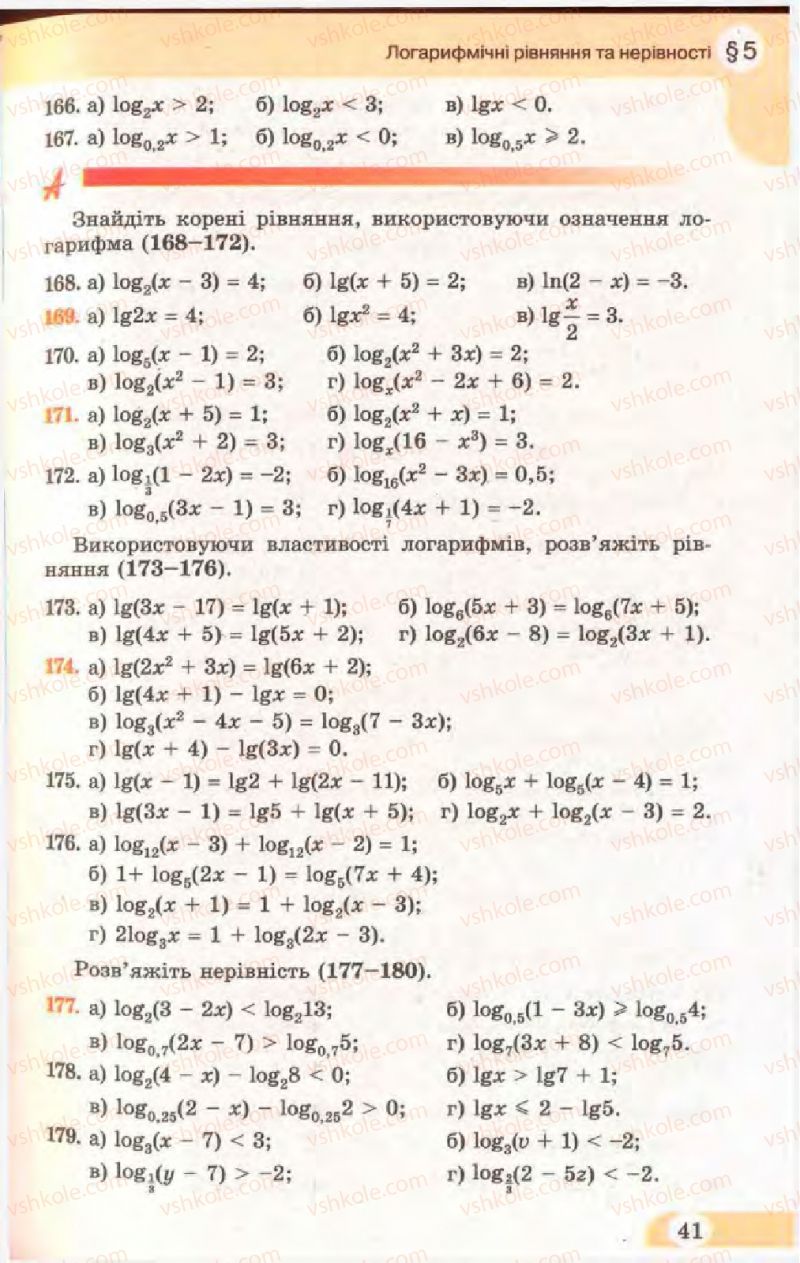 Логарифмічні рівняння та нерівності §5
166. а) log₂x > 2; б) log₂x < 3; в) lgx < 0.
167. а) log₀,₂x > 1; б) log₀,₂x < 0; в) log₀,₅x ⩾ 2.
А
Знайдіть корені рівняння, використовуючи означення ло-
гарифма (168–172).
168. а) log₂(x − 3) = 4; б) lg(x + 5) = 2; в) ln(2 − x) = −3.
169. а) lg2x = 4; б) lgx² = 4; в) lg x/2 = 3.
170. а) log₅(x − 1) = 2; б) log₂(x² + 3x) = 2;
в) log₂(x² − 1) = 3; г) logₓ(x² − 2x + 6) = 2.
171. а) log₂(x + 5) = 1; б) log₂(x² + x) = 1;
в) log₃(x² + 2) = 3; г) logₓ(16 − x³) = 3.
172. а) log_{1/3}(1 − 2x) = −2; б) log₁₆(x² − 3x) = 0,5;
в) log₀,₅(3x − 1) = 3; г) log_{1/7}(4x + 1) = −2.
Використовуючи властивості логарифмів, розв’яжіть рів-
няння (173–176).
173. а) lg(3x − 17) = lg(x + 1); б) log₆(5x + 3) = log₆(7x + 5);
в) lg(4x + 5) = lg(5x + 2); г) log₂(6x − 8) = log₂(3x + 1).
174. а) lg(2x² + 3x) = lg(6x + 2);
б) lg(4x + 1) − lgx = 0;
в) log₃(x² − 4x − 5) = log₃(7 − 3x);
г) lg(x + 4) − lg(3x) = 0.
175. а) lg(x − 1) = lg2 + lg(2x − 11); б) log₅x + log₅(x − 4) = 1;
в) lg(3x − 1) = lg5 + lg(x + 5); г) log₂x + log₂(x − 3) = 2.
176. а) log₁₂(x − 3) + log₁₂(x − 2) = 1;
б) 1+ log₅(2x − 1) = log₅(7x + 4);
в) log₂(x + 1) = 1 + log₂(x − 3);
г) 2log₃x = 1 + log₃(2x − 3).
Розв’яжіть нерівність (177–180).
177. а) log₂(3 − 2x) < log₂13; б) log₀,₅(1 − 3x) ⩾ log₀,₅4;
в) log₀,₇(2x − 7) > log₀,₇5; г) log₇(3x + 8) < log₇5.
178. а) log₂(4 − x) − log₂8 < 0; б) lgx > lg7 + 1;
в) log₀,₂₅(2 − x) − log₀,₂₅2 > 0; г) lgx ⩽ 2 − lg5.
179. а) log₃(x − 7) < 3; б) log₃(v + 1) < −2;
в) log_{1/3}(y − 7) > −2; г) log_{2/3}(2 − 5z) < −2.
41